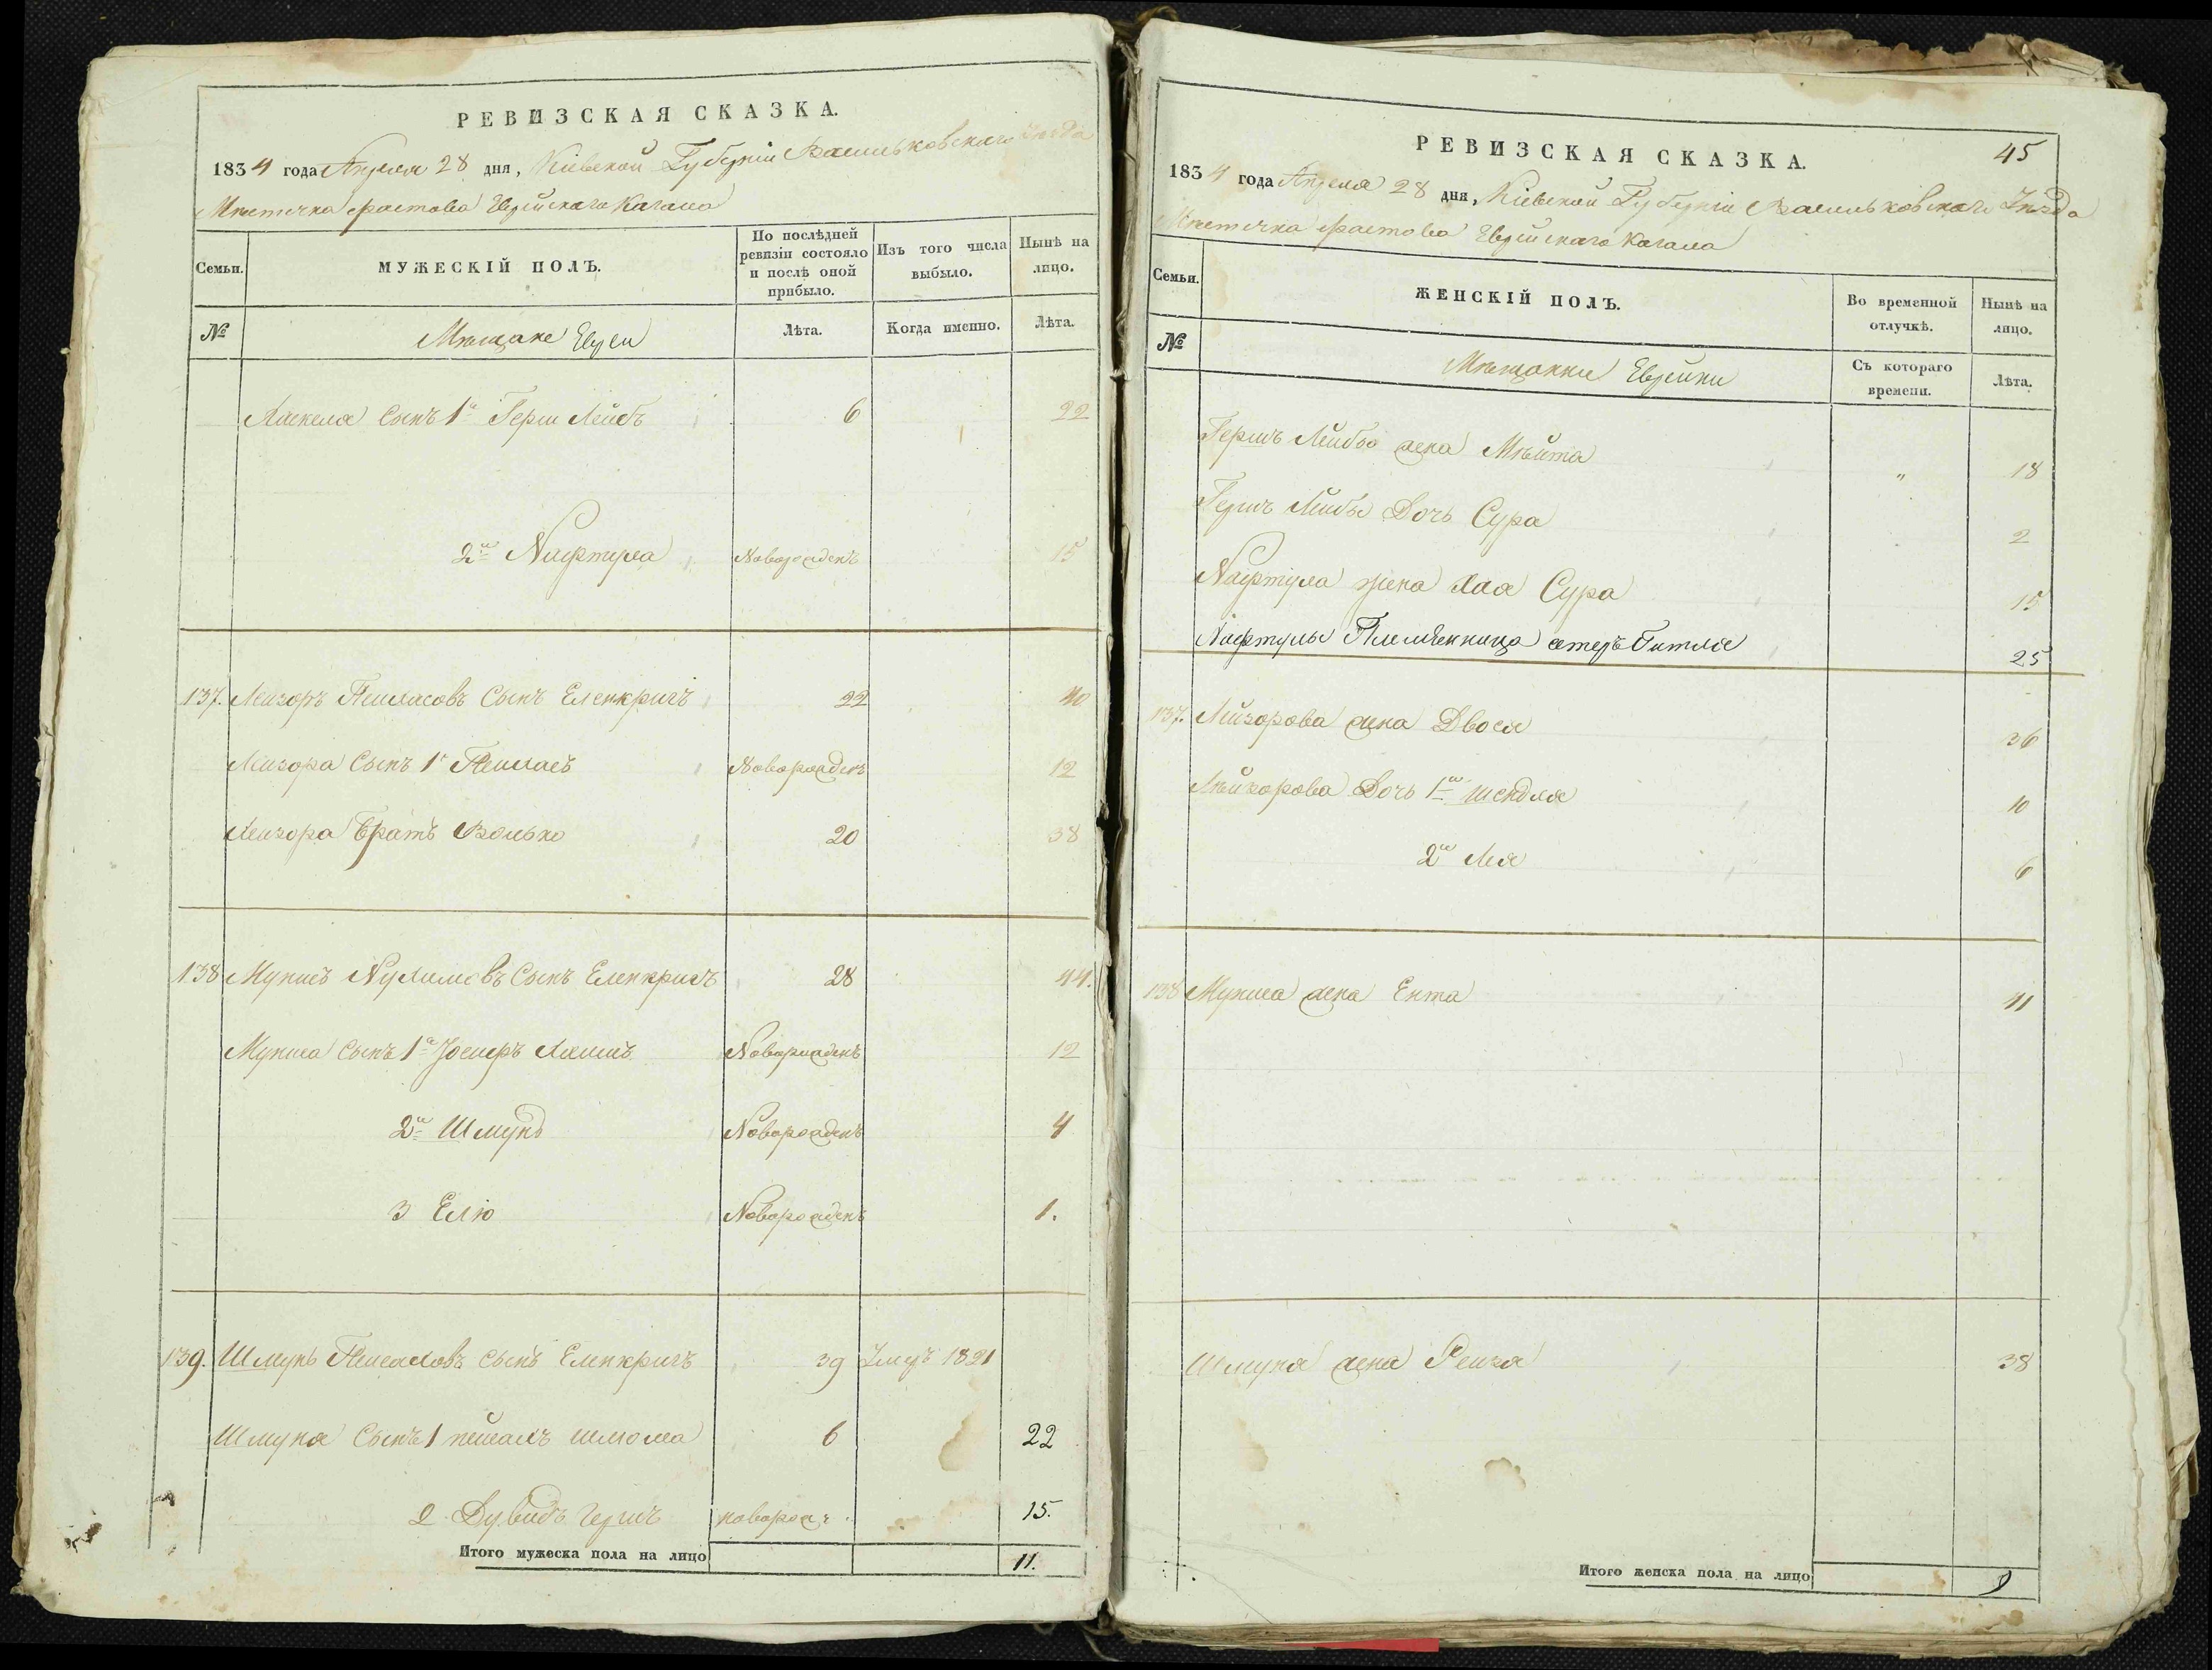 РЕВИЗСКАЯ СКАЗКА.
1834 года Апреля 28 дня, Кіевской Губерніи Васильковскаго Уезда
Местечка Фастова Еврейскаго Кагала
Семьи.
МУЖЕСКІЙ ПОЛЪ.
По послѣдней ревизіи состояло и послѣ оной прибыло.
Изъ того числа выбыло.
Нынѣ на лицо.
№
Мещане Евреи
Лѣта.
Когда именно.
Лѣта.
сынъ 1й Герш Лейбъ 6 22
2й Нафтула Новорожденъ 15
137. Лейзоръ сынъ Еленкригъ 22 40
Лейзора Сынъ 1й Новорожденъ 12
Лейзора Братъ Волько 20 38
138 Мунишъ сынъ Еленкригъ 28 44.
Муниша сынъ 1й Новорожденъ 12
2й Шмунь Новорожденъ 4
3 Елю Новорожденъ 1.
139. Шмунь сынъ Еленкригъ 39 Умеръ 1821
Шмуня Сынъ 1 шлюма 6 22
2 Дувидъ Гершъ новорож: 15.
Итого мужеска пола на лицо 11.
45
РЕВИЗСКАЯ СКАЗКА.
1834 года Апреля 28 дня, Кіевской Губерніи Васильковскаго Уезда
Местечка Фастова Еврейскаго Кагала
Семьи.
ЖЕНСКІЙ ПОЛЪ.
Во временной отлучкѣ.
Нынѣ на лицо.
№
Мещанки Еврейки
Съ котораго времени.
Лѣта.
Гершъ Лейбы жена Мейта „ 18
Гершъ Лейбы Дочь Сура 2
Нафтула жена Хая Сура 15
Нафтулы Племяенница естеръ Гитля 25
137. Лейзорова жена Двося 36
Лейзорова Дочь 1я Шендля 10
2я Лея 6
138 Муниша жена Ента 41
Шмуня жена Рейзя 38
Итого женска пола на лицо 9